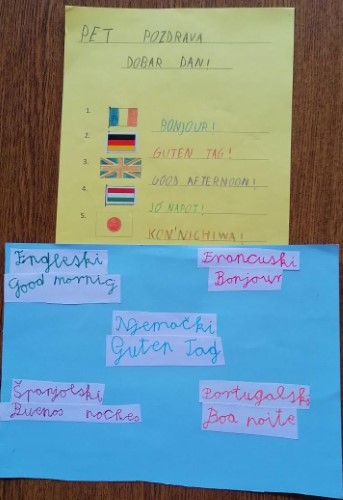 PET POZDRAVA
DOBAR DAN!
1. BONJOUR!
2. GUTEN TAG!
3. GOOD AFTERNOON!
4. JÓ NAPOT!
5. KON'NICHIWA!
Engleski
Good mornig
Francuski
Bonjour
Njemački
Guten Tag
Španjolski
Buenos noches
Portugalski
Boa noite